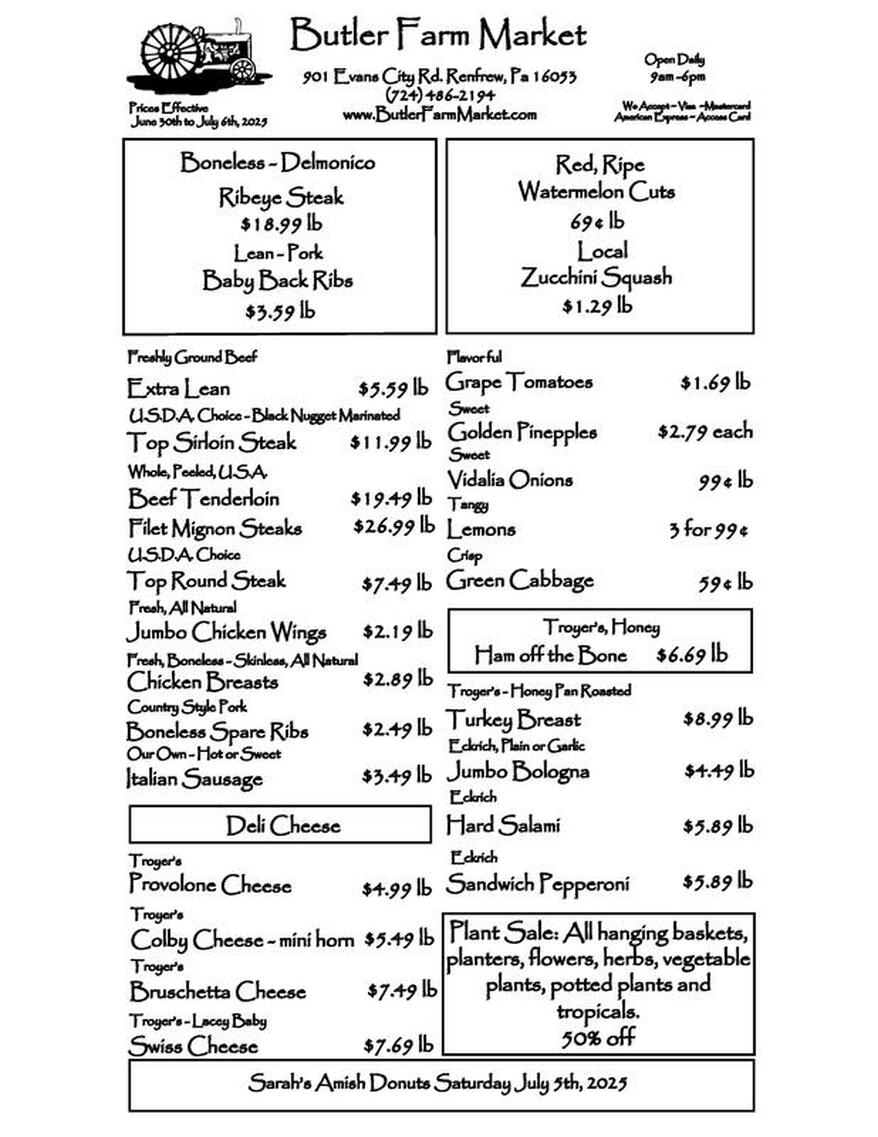 Butler Farm Market
901 Evans City Rd. Renfrew, Pa 16053
(724) 486-2194
www.ButlerFarmMarket.com
Open Daily
9am -6pm
Prices Effective
June 30th to July 6th, 2025
We Accept - Visa -Mastercard
American Express - Access Card
Boneless - Delmonico
Ribeye Steak
$18.99 lb
Lean - Pork
Baby Back Ribs
$3.59 lb
Red, Ripe
Watermelon Cuts
69¢ lb
Local
Zucchini Squash
$1.29 lb
Freshly Ground Beef
Extra Lean $5.59 lb
U.S.D.A. Choice - Black Nugget Marinated
Top Sirloin Steak $11.99 lb
Whole, Peeled, U.S.A.
Beef Tenderloin $19.49 lb
Filet Mignon Steaks $26.99 lb
U.S.D.A. Choice
Top Round Steak $7.49 lb
Fresh, All Natural
Jumbo Chicken Wings $2.19 lb
Fresh, Boneless - Skinless, All Natural
Chicken Breasts $2.89 lb
Country Style Pork
Boneless Spare Ribs $2.49 lb
Our Own - Hot or Sweet
Italian Sausage $3.49 lb
Deli Cheese
Troyer's
Provolone Cheese $4.99 lb
Troyer's
Colby Cheese - mini horn $5.49 lb
Troyer's
Bruschetta Cheese $7.49 lb
Troyer's - Lacey Baby
Swiss Cheese $7.69 lb
Flavorful
Grape Tomatoes $1.69 lb
Sweet
Golden Pinepples $2.79 each
Sweet
Vidalia Onions 99¢ lb
Tangy
Lemons 3 for 99¢
Crisp
Green Cabbage 59¢ lb
Troyer's, Honey
Ham off the Bone $6.69 lb
Troyer's - Honey Pan Roasted
Turkey Breast $8.99 lb
Eckrich, Plain or Garlic
Jumbo Bologna $4.49 lb
Eckrich
Hard Salami $5.89 lb
Eckrich
Sandwich Pepperoni $5.89 lb
Plant Sale: All hanging baskets,
planters, flowers, herbs, vegetable
plants, potted plants and
tropicals.
50% off
Sarah's Amish Donuts Saturday July 5th, 2025